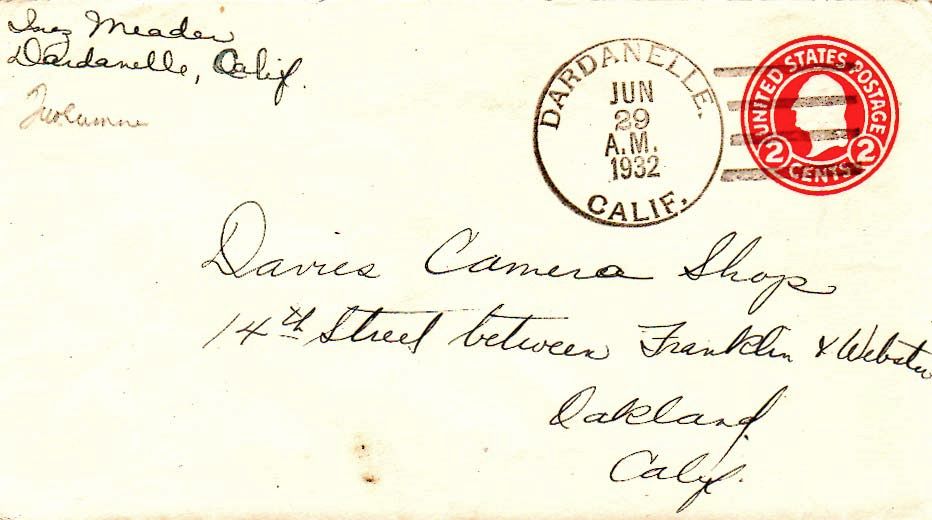 Inez Meader
Dardanelle, Calif.
Tuolumne
DARDANELLE.
JUN
29
A.M.
1932
CALIF.
UNITED STATES POSTAGE
2 CENTS 2
Davies Camera Shop
14th Street between Franklin & Webster
Oakland,
Calif.